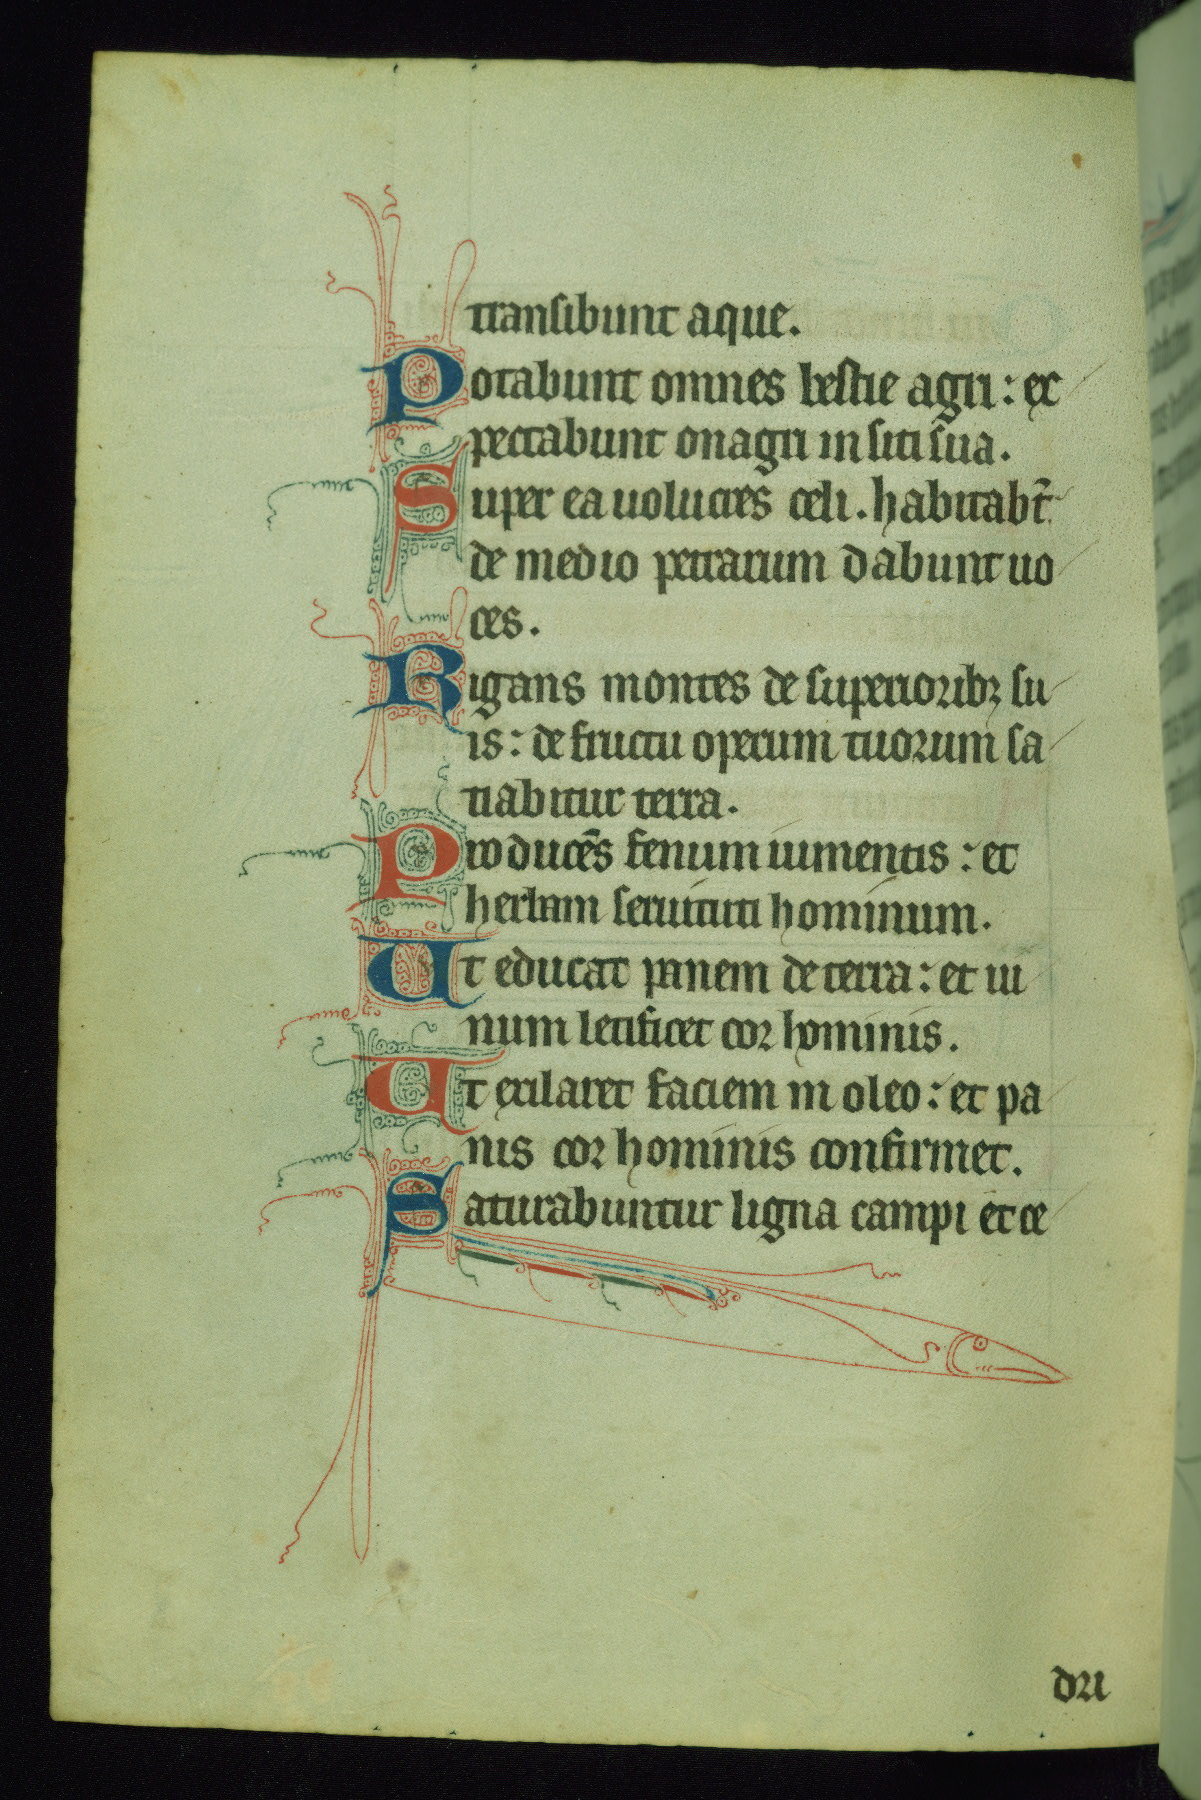 transibunt aque.
Potabunt omnes bestie agri : ex
pectabunt onagri in siti sua.
Super ea uolucres celi . habitabt̄
de medio petrarum dabunt uo
ces.
Rigans montes de superioribꝫ su
is : de fructu operum tuorum sa
tiabitur terra.
Producēs fenum iumentis : et
herbam seruituti hominum.
Ut educat panem de terra : et ui
num letificet cor hominis.
Ut exilaret faciem in oleo : et pa
nis cor hominis confirmet.
Saturabuntur ligna campi et ce
dri